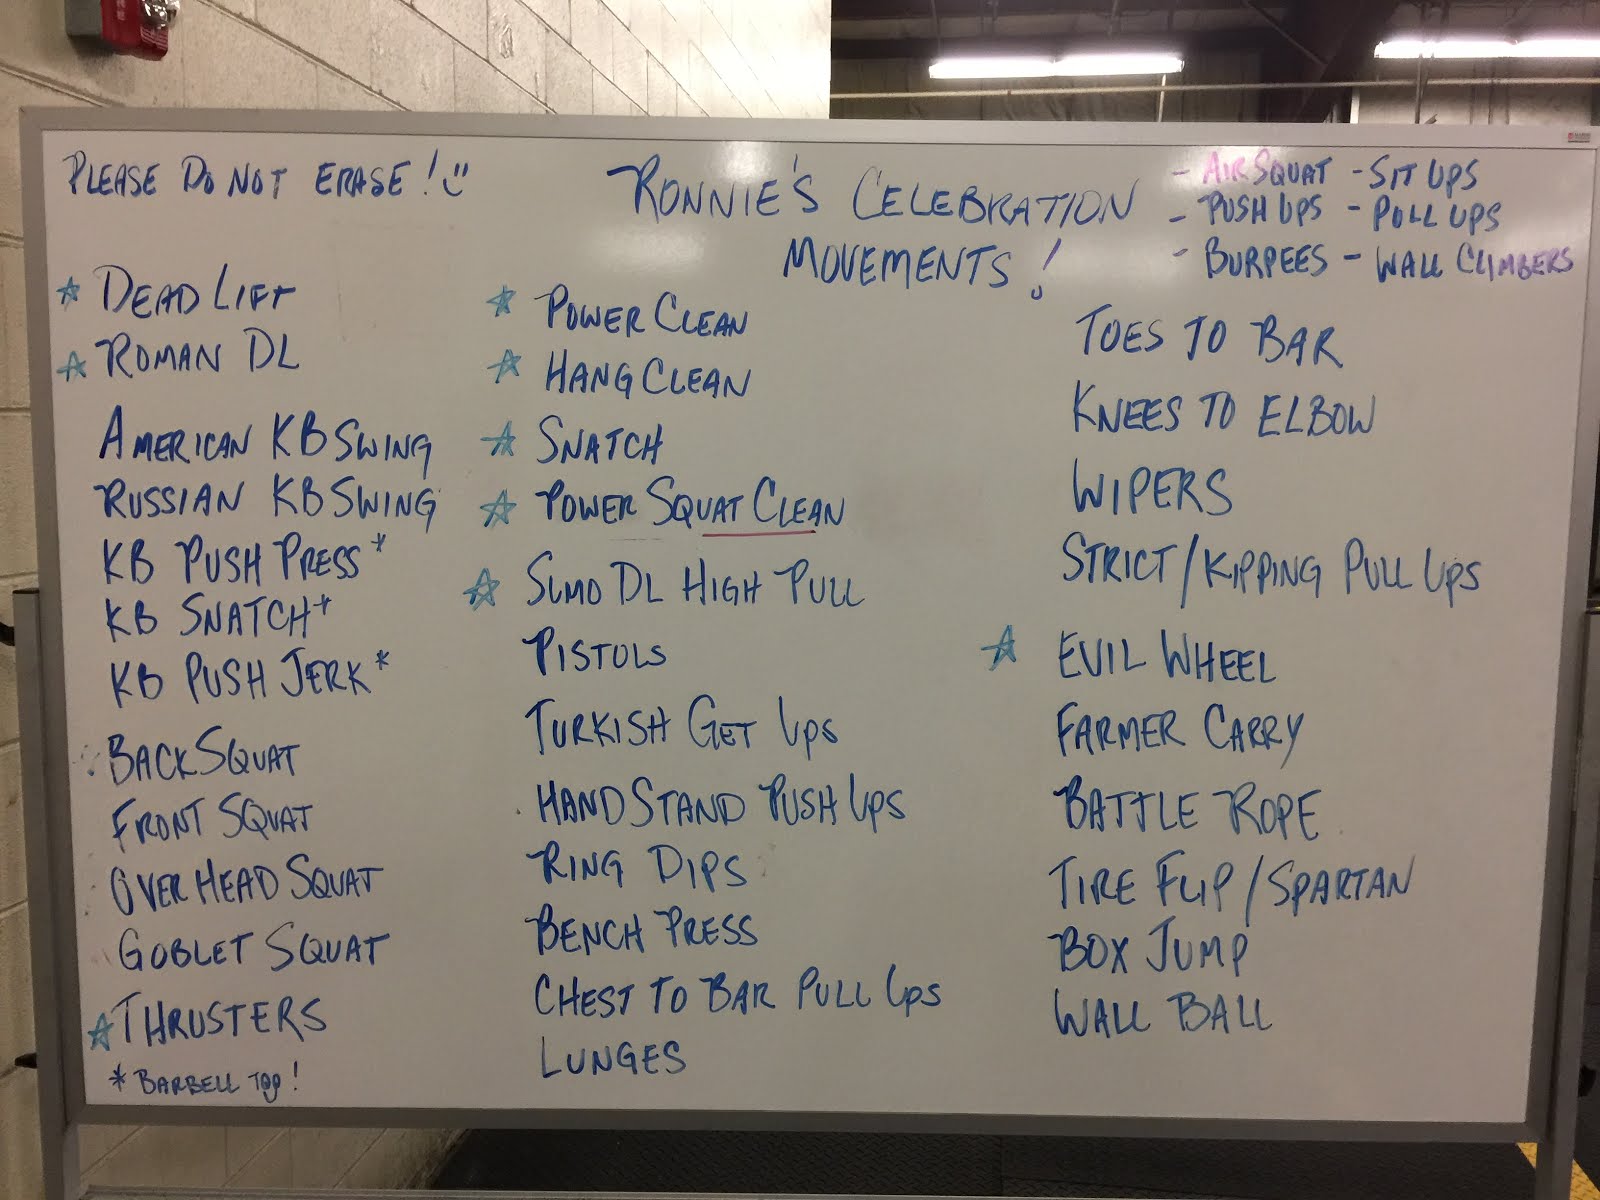 PLEASE DO NOT ERASE!
RONNIE'S CELEBRATION
MOVEMENTS!
- AIR SQUAT - SIT UPS
- PUSH UPS - PULL UPS
- BURPEES - WALL CLIMBERS
☆ DEAD LIFT
☆ ROMAN DL
AMERICAN KB SWING
RUSSIAN KB SWING
KB PUSH PRESS*
KB SNATCH*
KB PUSH JERK*
BACK SQUAT
FRONT SQUAT
OVER HEAD SQUAT
GOBLET SQUAT
☆ THRUSTERS
* BARBELL TOO!
☆ POWER CLEAN
☆ HANG CLEAN
☆ SNATCH
☆ POWER SQUAT CLEAN
☆ SUMO DL HIGH PULL
PISTOLS
TURKISH GET UPS
HAND STAND PUSH UPS
RING DIPS
BENCH PRESS
CHEST TO BAR PULL UPS
LUNGES
TOES TO BAR
KNEES TO ELBOW
WIPERS
STRICT/KIPPING PULL UPS
☆ EVIL WHEEL
FARMER CARRY
BATTLE ROPE
TIRE FLIP/SPARTAN
BOX JUMP
WALL BALL